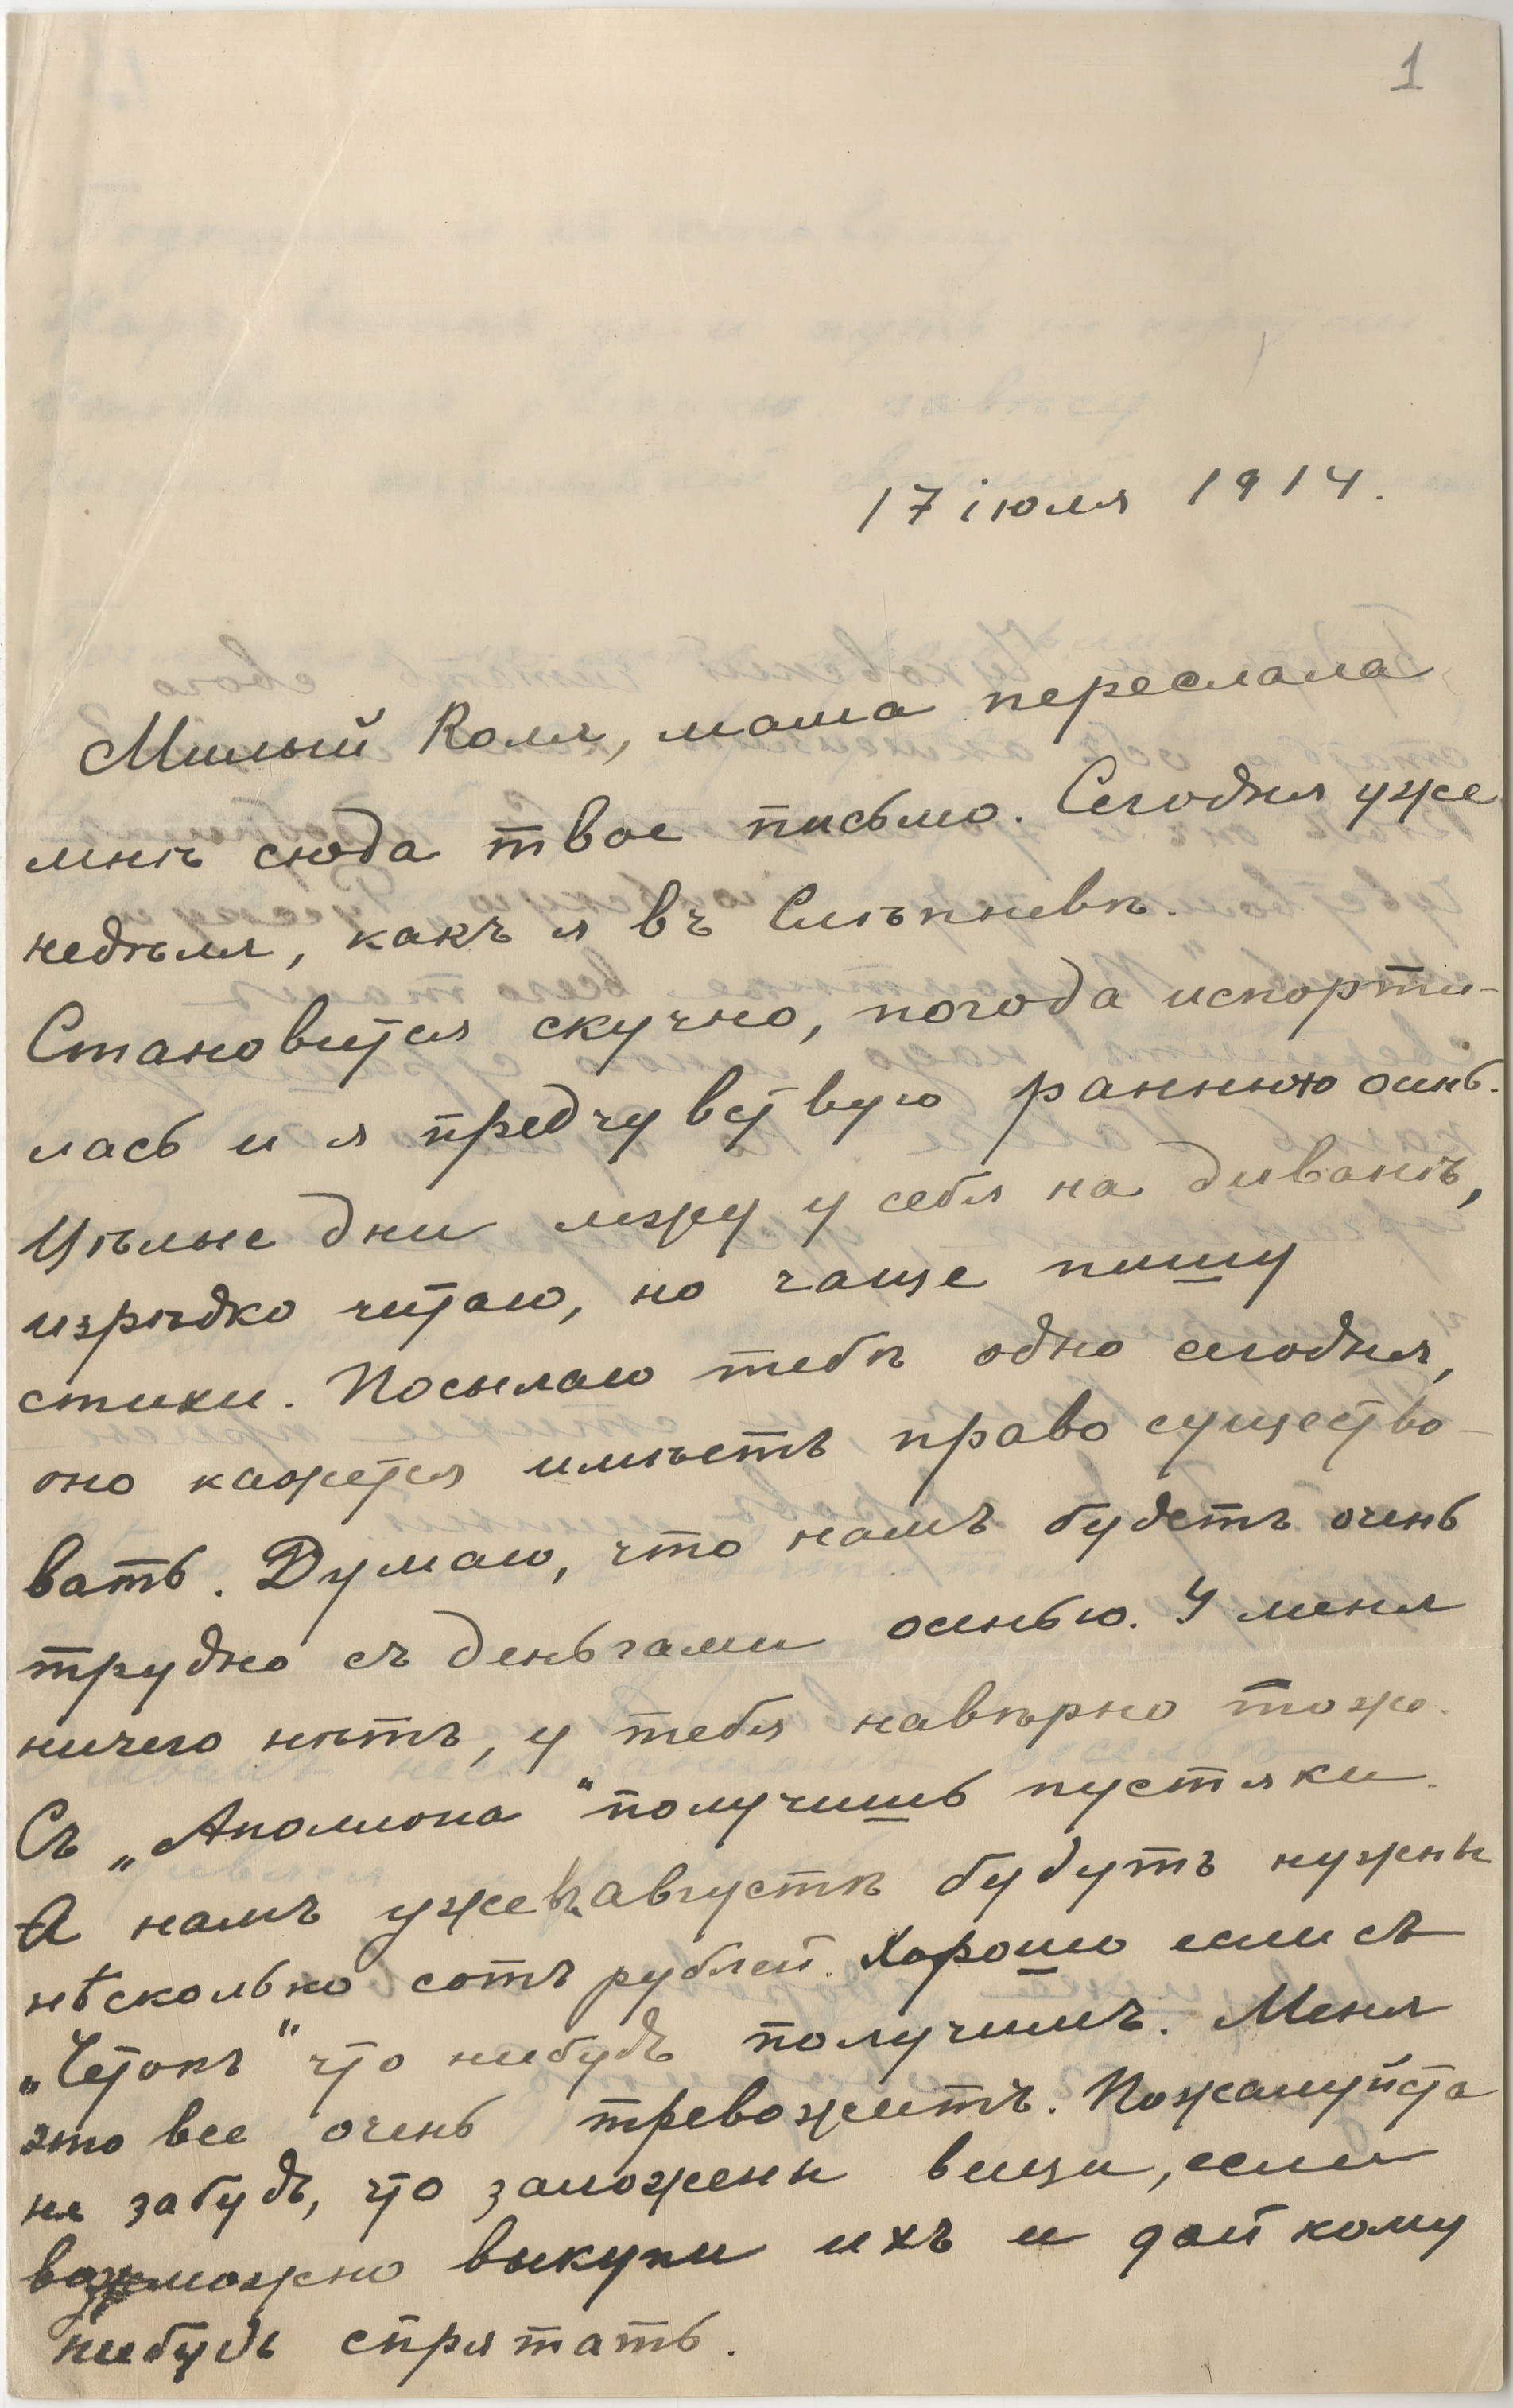 1
17 іюля 1914.
Милый Коля, мама переслала
мнѣ сюда твое письмо. Сегодня уже
недѣля, какъ я въ Слѣпневѣ.
Становится скучно, погода испорти-
лась и я предчувствую раннюю осень.
Цѣлые дни лежу у себя на диванѣ,
изрѣдка читаю, но чаще пишу
стихи. Посылаю тебѣ одно сегодня,
оно кажется имѣетъ право существо-
вать. Думаю, что намъ будетъ очень
трудно съ деньгами осенью. У меня
ничего нѣтъ, у тебя навѣрно тоже.
Съ „Аполлона" получишь пустяки.
А намъ уже въ августѣ будутъ нужны
нѣсколько сотъ рублей. Хорошо если съ
„Четокъ" что нибудь получимъ. Меня
это все очень тревожитъ. Пожалуйста
не забудь, что заложены вещи, если
возможно выкупи ихъ и дай кому
нибудь спрятать.